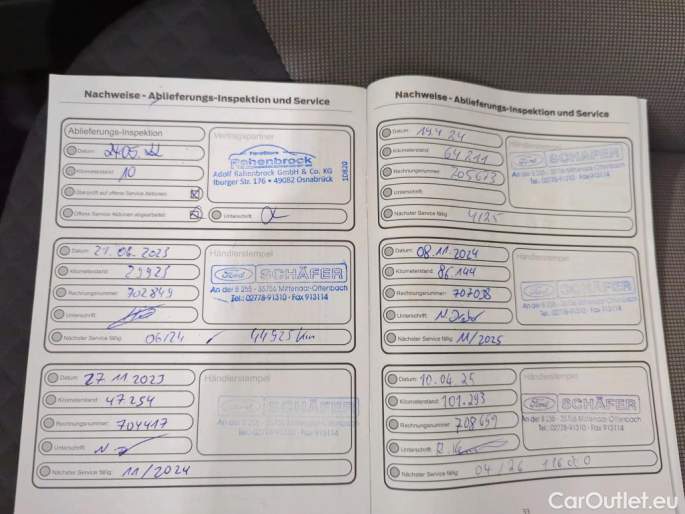 Nachweise - Ablieferungs-Inspektion und Service
Ablieferungs-Inspektion
Datum: 24.05.
Kilometerstand: 10
Überprüft auf offene Service Aktionen:
Offene Service Aktionen abgearbeitet:
Vertragspartner
FordStore
Rahenbrock
Adolf Rahenbrock GmbH & Co. KG
Iburger Str. 176 • 49082 Osnabrück
10620
Unterschrift:
Datum: 21.06.2023
Kilometerstand: 29925
Rechnungsnummer: 702849
Unterschrift:
Nächster Service fällig: 06/24 44925 km
Händlerstempel
Ford SCHÄFER
An der B 255 - 35756 Mittenaar-Offenbach
Tel.: 02778-91310 · Fax 913114
Datum: 27 11 2023
Kilometerstand: 47254
Rechnungsnummer: 704417
Unterschrift:
Nächster Service fällig: 11/2024
Händlerstempel
Ford SCHÄFER
An der B 255 - 35756 Mittenaar-Offenbach
Tel.: 02778-91310 · Fax 913114
Nachweise - Ablieferungs-Inspektion und Service
Datum: 19 4 24
Kilometerstand: 64211
Rechnungsnummer:
Unterschrift:
Nächster Service fällig: 4/25
Händlerstempel
Ford SCHÄFER
An der B 255 - 35756 Mittenaar-Offenbach
Tel.: 02778-91310 · Fax 913114
Datum: 08.11.2024
Kilometerstand: 86.144
Rechnungsnummer: 707038
Unterschrift:
Nächster Service fällig: 11/2025
Händlerstempel
Ford SCHÄFER
An der B 255 - 35756 Mittenaar-Offenbach
Tel.: 02778-91310 · Fax 913114
Datum: 10.04.25
Kilometerstand: 101.293
Rechnungsnummer: 708459
Unterschrift:
Nächster Service fällig: 04/26
Händlerstempel
Ford SCHÄFER
An der B 255 - 35756 Mittenaar-Offenbach
Tel.: 02778-91310 · Fax 913114
CarOutlet.eu